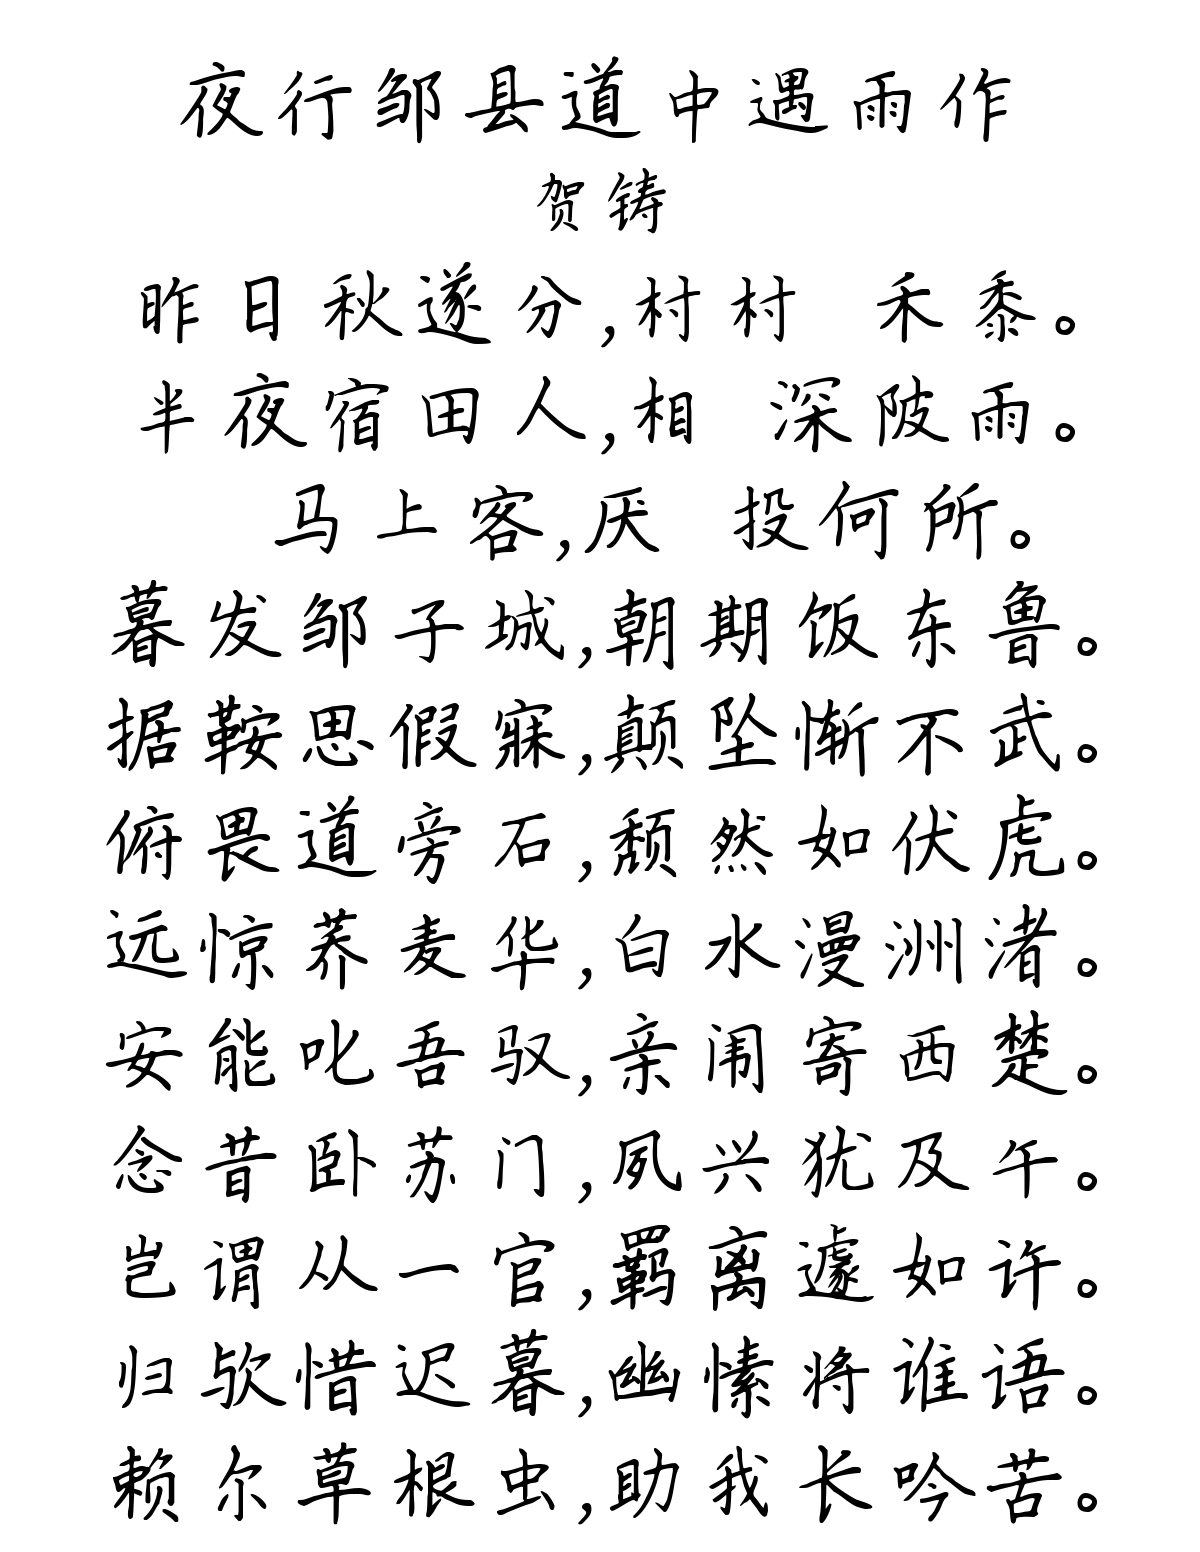 夜行邹县道中遇雨作
贺铸
昨日秋遂分,村村 禾黍。
半夜宿田人,相 深陂雨。
马上客,厌 投何所。
暮发邹子城,朝期饭东鲁。
据鞍思假寐,颠坠惭不武。
俯畏道旁石,颓然如伏虎。
远惊荞麦华,白水漫洲渚。
安能叱吾驭,亲闱寄西楚。
念昔卧苏门,夙兴犹及午。
岂谓从一官,羁离遽如许。
归欤惜迟暮,幽愫将谁语。
赖尔草根虫,助我长吟苦。